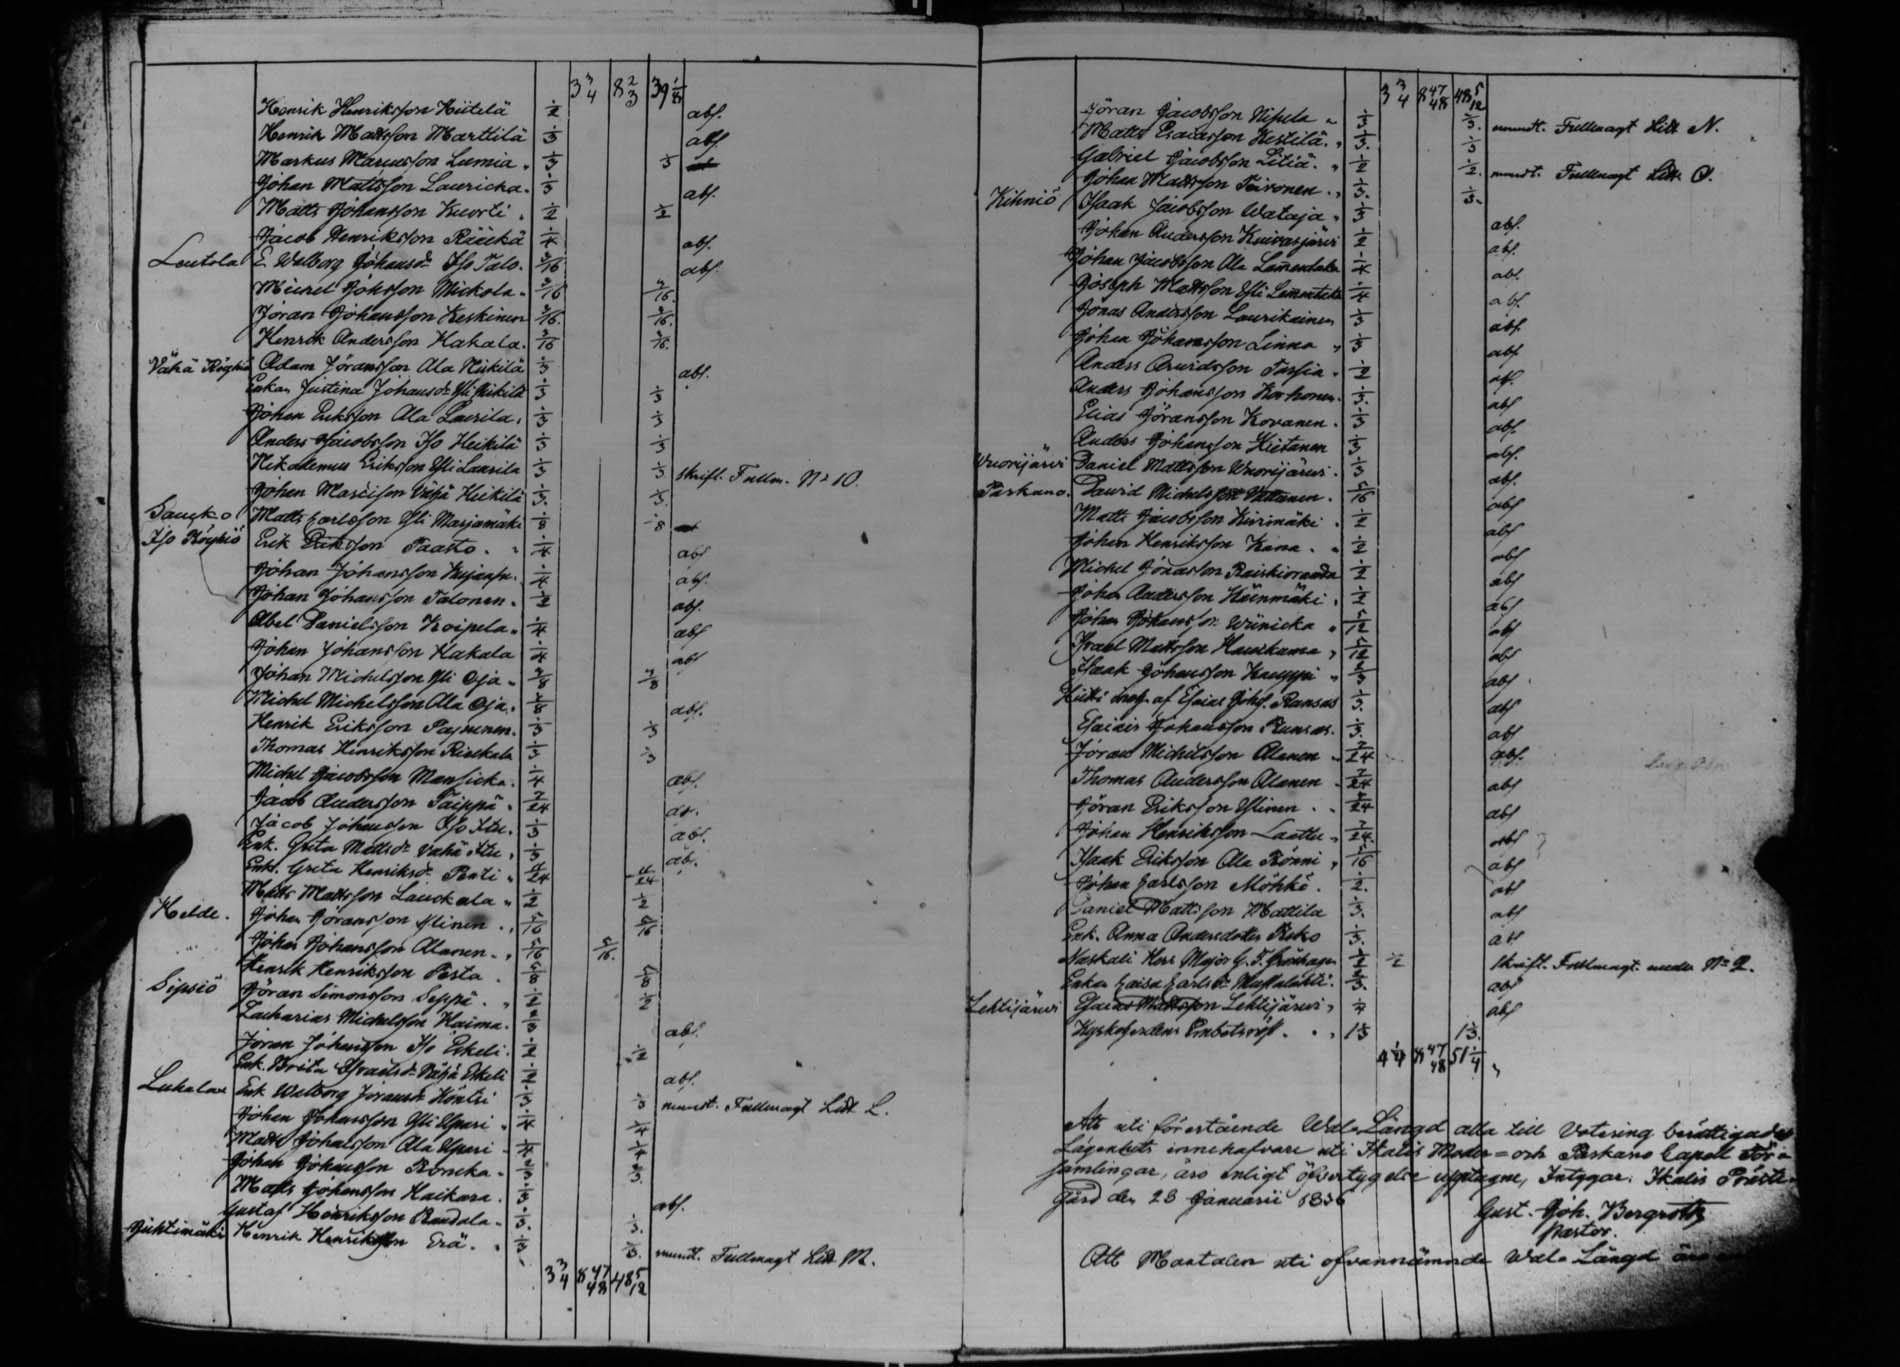 3 3/4 8 2/3 39 1/8
Henrik Henriksson Kiitelä 1/2 abs.
Henrik Mattsson Marttilä 1/3 abs.
Markus Marcusson Lumia 1/3 1/3
Johan Mattsson Lauricka 1/3 abs.
Matts Johansson Kuorti 1/2 1/2
Jacob Henriksson Rääckä 1/4 abs.
Leutola E. Walborg Johansdr Iso Talo 3/16 abs.
Michel Johsson Mickola 3/16 3/16
Jöran Johansson Keskinen 3/16 3/16
Henrik Andersson Hakala 3/16 3/16
Vähä Röyhiö Adam Jöransson Ala Niskilä 1/3 abs.
Enkan Justina Johansdr Yli Niskilä 1/3 1/3
Johan Eriksson Ala Laurila 1/3 1/3
Anders Jacobsson Iso Heikilä 1/3 1/3
Nikodemus Eriksson Yli Laurila 1/3 1/3 skriftl. Fullm. No 10.
Johan Vähä Heikilä 1/3 1/3
Matts Carlsson Yli Marjamäki 1/8 1/8
Iso Röyhiö Erik Eriksson Paasto 1/4 abs
Johan Johansson 1/4 abs.
Johan Johansson Talonen 1/2 abs.
Abel Danielsson Koipela 1/4 abs
Johan Johansson Hakala 1/4 abs
Johan Michelsson Yli Oja 3/8 3/8
Michel Michelsson Ala Oja 3/8 abs.
Henrik Eriksson Paynenen 1/3 1/3
Thomas Henriksson Rieskala 1/3 1/3
Michel Jacobsson Mansicka 1/4 abs.
Jacob Andersson Taippä 7/24 ab.
Jacob Johansson Iso Itu 1/3 ab.
Enk. Greta Mattsdr Vähä Itu 1/3 ab.
Enk. Greta Henriksdr Penti 4/24 4/24
Matts Mattsson Lauckala 1/2 1/2
Kelde. Johan Jöransson Ylinen 5/16 5/16
Johan Johansson Alanen 5/16 5/16
Henrik Henriksson Pesta 5/8 5/8
Sipsiö Jöran Simonsson Seppä 1/2 1/2
Zacharias Michelsson Haima 2/3 abs.
Jöran Johansson Iso Eskeli 1/2 1/2
Enk. Brita Israelsdr Vähä Eskeli 1/2 abs.
Luhalax Enk Walborg Jöransdr Köntti 1/3 1/3 mundt. Fullmagt Litt L.
Johan Johansson Yli Uppari 1/4 1/4
Matts Johansson Ala Uppari 1/4 1/4
Johan Johansson Röncka 2/3 2/3
Matts Johansson Haikara 1/3 abs.
Gustaf Henriksson Randala 1/3 1/3
Juhtimäki Henrik Henriksson Erä 1/3 1/3 mundt. Fullmagt Litt M.
3 3/4 8 47/48 48 5/12
3 3/4 8 47/48 48 5/12
Jöran Jacobsson Nipela 1/3 1/3 mundt. Fullmagt Litt N.
Matts Esaiasson Kestilä 1/3 1/3
Gabriel Jacobsson Litiä 1/2 1/2 mundt. Fullmagt Litt O.
Johan Mattsson Toivonen 1/3 1/3
Kihniö Isaak Jacobsson Wataja 1/3 abs.
Johan Andersson Kuivasjärvi 1/2 abs.
Johan Jacobsson Ala Lamentaka 1/4 abs.
Joseph Mattsson Yli Lamentaka 1/4 abs.
Jonas Andersson Laurikainen 1/3 abs.
Johan Johansson Linna 1/3 abs
Anders Arvidsson Tarsia 1/2 abs.
Anders Johansson Korhonen 1/3 abs
Elias Jöransson Kovanen 1/3 abs.
Anders Johansson Kietanen 1/3 abs.
Wuorijärvi Daniel Mattsson Wuorijärvi 1/3 abs.
Parkano. David Michelsson Vattanen 5/16 abs
Matts Jacobsson Kivimäki 1/2 abs
Johan Henriksson Kana 1/2 abs
Michel Jonasson Raiskionranda 1/2 abs
Johan Andersson Heinmäki 1/2 abs
Johan Johansson Wiinicka 5/12 abs
Israel Mattsson Hauskama 5/12 abs
Isaak Johansson Kauppi 2/3 abs
Kuti innh. af Esaias Johs. Ransas 1/3 abs
Esaias Johansson Runsas 1/3 abs
Jöran Michelsson Alanen 7/24 abs.
Thomas Andersson Alanen 7/24 abs
Jöran Eriksson Ylinen 7/24 abs
Johan Henriksson Laattu 7/24 abs
Isaak Eriksson Ala Rönni 5/16 abs
Johan Carlsson Möhkö 1/2 abs
Daniel Mattsson Mattila 1/3 abs
Enk. Anna Andersdotter Reko 1/3 abs
Naskali Herr Major G. F. Grönhagen 1/2 1/2 skriftl. Fullmagt under No 2.
Enkan Caisa Carlsdr Mattalahti 2/3 abs
Lehtijärvi Esaias Mattsson Lehtijärvi 1/4 abs
Kyrkoherdens Embetsröst 1 1/3 1 1/3
4 1/4 8 47/48 51 1/4
Att uti förestående Wal-Längd alla till Votering berättigade
Lägenhets innehafvare uti Ikalis Moder= och Parkano Capell För-
samlingar, äro enligt öfvertygelse upptagne, Intygar. Ikalis Präste-
gård den 23 Januarii 1836
Gust. Joh. Bergroth
Pastor.
Att Mantalen uti ofvannämnde Wal-Längd äro